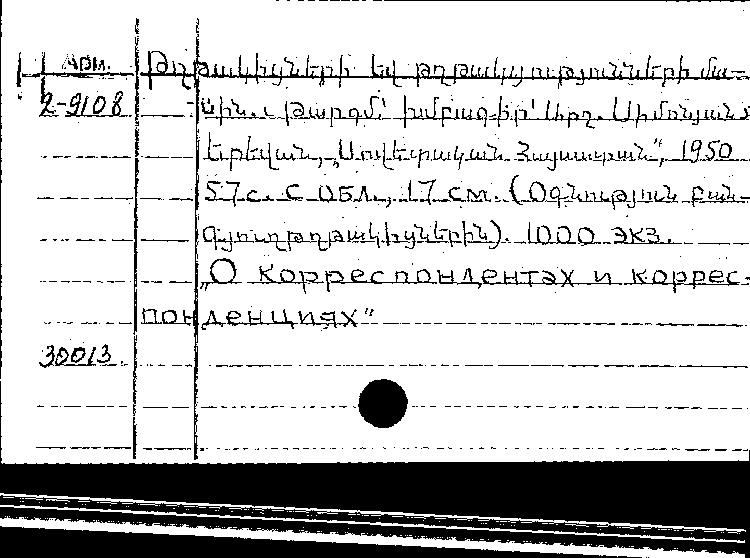 Арм. Թղթակիցների եվ թղթակցությունների մա-
2-9108 սին. Թարգմ.՝ խմբագիր՝ Արշ. Սիմոնյան
Երեվան, „Սովետական Հայաստան“, 1950
57 с. с обл., 17 см. (Օգնություն բան-
գյուղթղթակիցներին). 1000 экз.
„О корреспондентах и коррес-
понденциях“
30013.